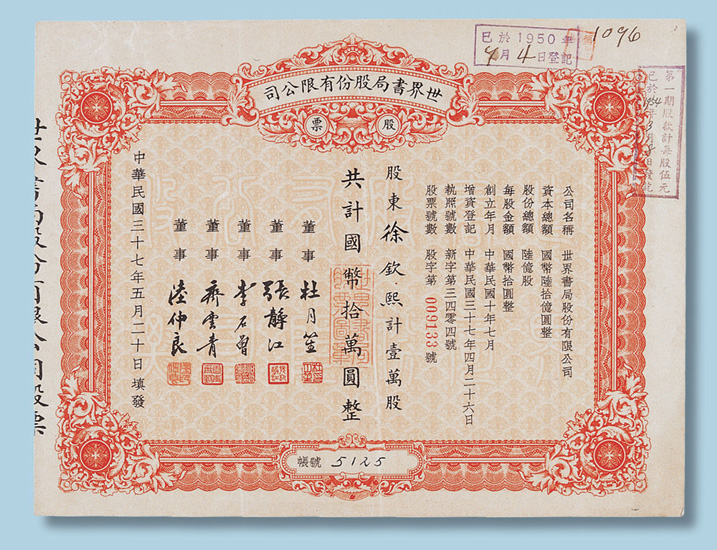 已於1950年
9月4日登記
1096
第一期股款計每股伍元
世界書局股份有限公司
股票
公司名稱 世界書局股份有限公司
資本總額 國幣陸拾億圓整
股份總額 陸億股
每股金額 國幣拾圓整
創立年月 中華民國十年七月
增資登記 中華民國三十七年四月二十六日
執照號數 新字第三四零四號
股票號數 股字第009133號
股東徐欽熙計壹萬股
共計國幣拾萬圓整
董事 杜月笙
董事 張靜江
董事 李石曾
董事 齊雲青
董事 陸仲良
中華民國三十七年五月二十日填發
帳號 5125